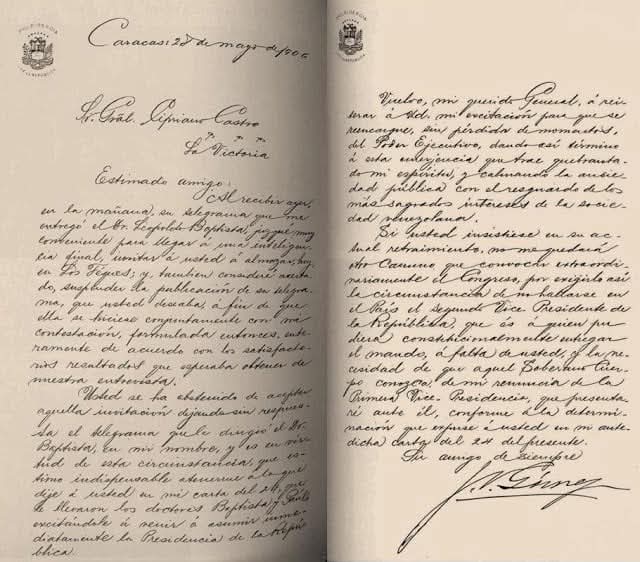 PRESIDENCIA
DE LA REPUBLICA
Caracas: 28 de mayo de 1906
Sr. Gral. Cipriano Castro
La Victoria
Estimado amigo:
Al recibir ayer,
en la mañana, su telegrama que me
entregó el Dr. Leopoldo Baptista, juzgué muy
conveniente para llegar á una inteligen-
cia final, invitar á usted á almorzar hoy
en Los Teques; y tambien consideré acerta-
do, suspender la publicación de su telegra-
ma, que usted deseaba, á fin de que
ella se hiciese conjuntamente con mi
contestación, formulada entonces, ente-
ramente de acuerdo con los satisfacto-
rios resultados que esperaba obtener de
nuestra entrevista.
Usted se ha abstenido de aceptar
aquella invitación dejando sin respues-
ta el telegrama que le dirigió el Dr.
Baptista, en mi nombre, y es en vir-
tud de esta circunstancia, que es-
timo indispensable atenerme á lo que
dije á usted en mi carta del 24, que
le llevaron los doctores Baptista y
excitándole á venir á asumir inme-
diatamente la Presidencia de la Repú-
blica.
PRESIDENCIA
DE LA REPUBLICA
Vuelvo, mi querido General, á rei-
terar á Ud. mi excitación para que se
reencargue, sin pérdida de momentos,
del Poder Ejecutivo, dando así término
á esta emerjencia que trae quebranta-
do mi espíritu, y calmando la ansie-
dad pública con el resguardo de los
más sagrados intereses de la socie-
dad venezolana.
Si usted insistiese en su ac-
tual retraimiento, no me quedará
otro camino que convocar extraordi-
nariamente el Congreso, por exigirlo así
la circunstancia de no hallarse en
el País el segundo Vice Presidente de
la República, que és á quien pu-
diera constitucionalmente entregar
el mando, á falta de usted, y la ne-
cesidad de que aquel Soberano Cuer-
po conozca, de mi renuncia de la
Primera Vice-Presidencia, que presenta-
ré ante él, conforme á la determi-
nación que expuse á usted en mi ante-
dicha carta del 24 del presente.
Su amigo de siempre
J. V. Gómez